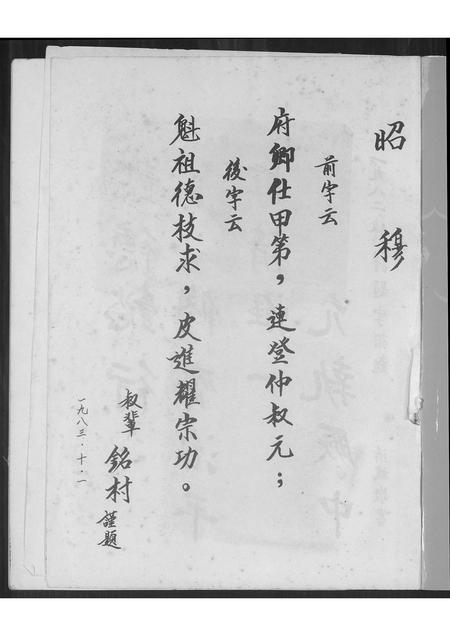 昭穆
前字云
府卿仕甲第，連登仲叔元；
後字云
魁祖德技求，皮進耀宗功。
叔輩 銘村 謹題
一九八三·十·一